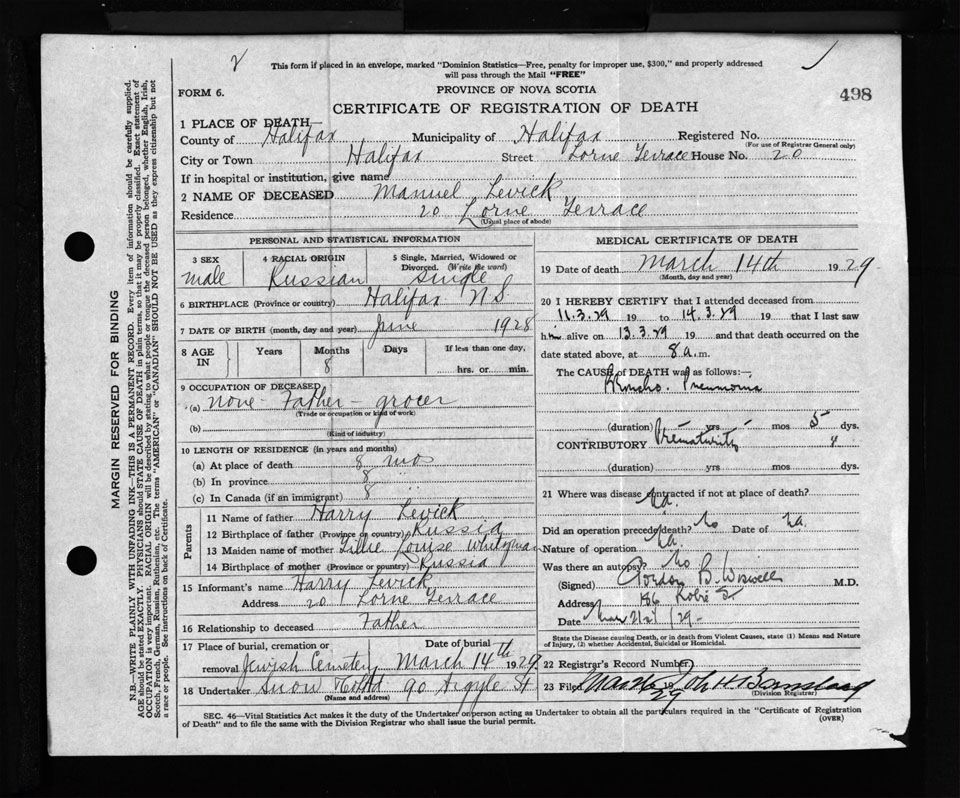 2
This form if placed in an envelope, marked "Dominion Statistics—Free, penalty for improper use, $300," and properly addressed
will pass through the Mail "FREE"
FORM 6.
PROVINCE OF NOVA SCOTIA
498
CERTIFICATE OF REGISTRATION OF DEATH
1 PLACE OF DEATH
County of Halifax Municipality of Halifax Registered No.
(For use of Registrar General only)
City or Town Halifax Street Lorne Terrace House No. 20
If in hospital or institution, give name
2 NAME OF DECEASED Manuel Levick
Residence 20 Lorne Terrace
(Usual place of abode)
PERSONAL AND STATISTICAL INFORMATION
3 SEX 4 RACIAL ORIGIN 5 Single, Married, Widowed or
Divorced. (Write the word)
male Russian single
6 BIRTHPLACE (Province or country) Halifax N.S.
7 DATE OF BIRTH (month, day and year) June 1928
8 AGE IN Years Months Days If less than one day,
8 hrs. or min.
9 OCCUPATION OF DECEASED
(a) none - Father - grocer
(Trade or occupation or kind of work)
(b)
(Kind of industry)
10 LENGTH OF RESIDENCE (in years and months)
(a) At place of death 8 mos
(b) In province 8 "
(c) In Canada (if an immigrant) 8 "
Parents
11 Name of father Harry Levick
12 Birthplace of father (Province or country) Russia
13 Maiden name of mother Tillie Louise
14 Birthplace of mother (Province or country) Russia
15 Informant's name Harry Levick
Address 20 Lorne Terrace
16 Relationship to deceased Father
17 Place of burial, cremation or removal Date of burial
Jewish Cemetery March 14th 1929
18 Undertaker Snow 90 Argyle St
(Name and address)
MEDICAL CERTIFICATE OF DEATH
19 Date of death March 14th 1929
(Month, day and year)
20 I HEREBY CERTIFY that I attended deceased from
11.3.29 19 to 14.3.29 19 that I last saw
him alive on 13.3.29 19 and that death occurred on the
date stated above, at 8 a.m.
The CAUSE of DEATH was as follows:—
Broncho. Pneumonia
(duration) yrs mos 5 dys.
CONTRIBUTORY Prematurity
(duration) yrs mos dys.
21 Where was disease contracted if not at place of death?
Did an operation precede death? No Date of
Nature of operation
Was there an autopsy? No
(Signed) Gordon B. Wiswell M.D.
Address 186 Robie St
Date /29-
State the Disease causing Death, or in death from Violent Causes, state (1) Means and Nature
of Injury, (2) whether Accidental, Suicidal or Homicidal.
22 Registrar's Record Number
23 Filed 19 29 John H Barnstead
(Division Registrar)
SEC. 46—Vital Statistics Act makes it the duty of the Undertaker or person acting as Undertaker to obtain all the particulars required in the "Certificate of Registration
of Death" and to file the same with the Division Registrar who shall issue the burial permit.
(OVER)
MARGIN RESERVED FOR BINDING
N.B.—WRITE PLAINLY WITH UNFADING INK—THIS IS A PERMANENT RECORD. Every item of information should be carefully supplied.
AGE should be stated EXACTLY. PHYSICIANS should STATE CAUSE OF DEATH in plain terms, so that it may be properly classified. Exact statement of
OCCUPATION is very important. RACIAL ORIGIN will be described by stating to what people or tongue the deceased person belonged, whether English, Irish,
Scotch, French, German, Russian, Ruthenian, etc. The terms "AMERICAN" or "CANADIAN" SHOULD NOT BE USED as they express citizenship but not
a race or people. See instructions on back of Certificate.